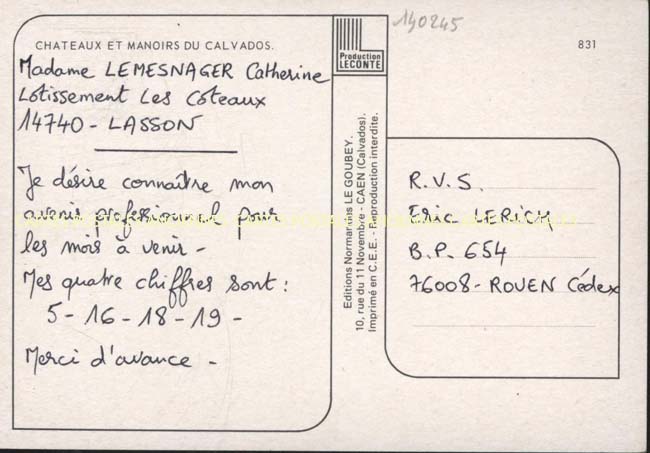 140245
CHATEAUX ET MANOIRS DU CALVADOS.
831
Production
LECONTE
Madame LEMESNAGER Catherine
Lotissement Les Coteaux
14740 - LASSON
Je désire connaître mon
avenir professionnel pour
les mois à venir -
Mes quatre chiffres sont :
5 - 16 - 18 - 19 -
Merci d'avance -
Editions Normandes LE GOUBEY.
10, rue du 11 Novembre - CAEN (Calvados).
Imprimé en C.E.E. - Reproduction interdite.
R.V.S.
Eric LERICH
B.P. 654
76008 - ROUEN Cédex